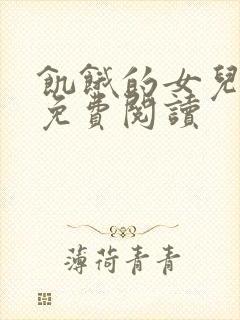 飢餓的女兒
免費閱讀
薄荷青青